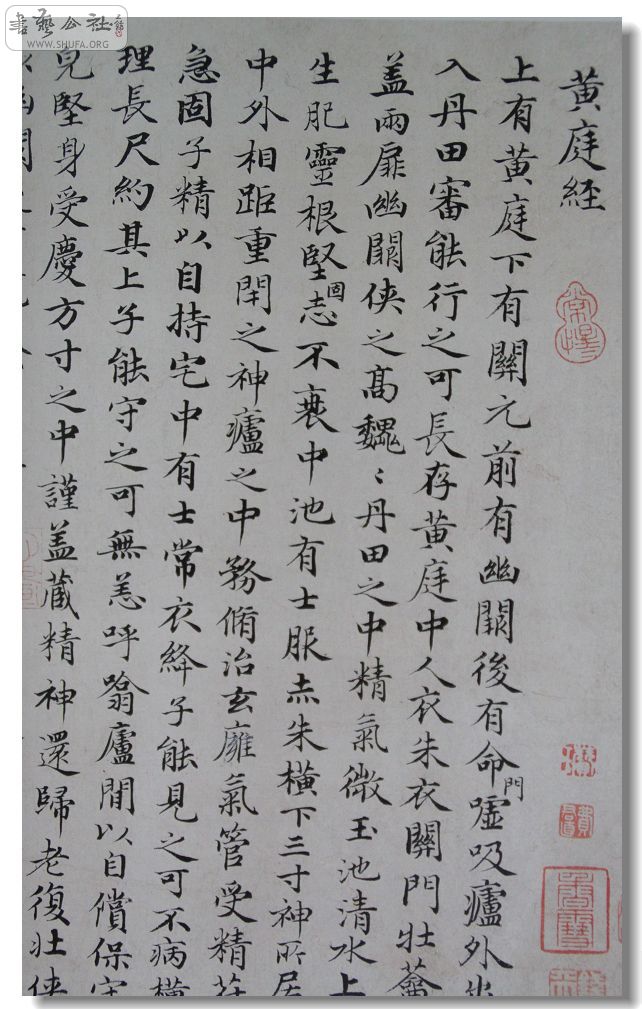 書藝公社
WWW.SHUFA.ORG
黃庭經
上有黃庭下有關元前有幽闕後有命門噓吸廬外出
入丹田審能行之可長存黃庭中人衣朱衣關門壯蘥
蓋兩扉幽闕俠之高巍〻丹田之中精氣微玉池清水上
生肥靈根堅固志不衰中池有士服赤朱橫下三寸神所居
中外相距重閇之神廬之中務脩治玄廱氣管受精苻
急固子精以自持宅中有士常衣絳子能見之可不病橫
理長尺約其上子能守之可無恙呼翕廬間以自償保守
皃堅身受慶方寸之中謹蓋藏精神還歸老復壯俠
幽闕